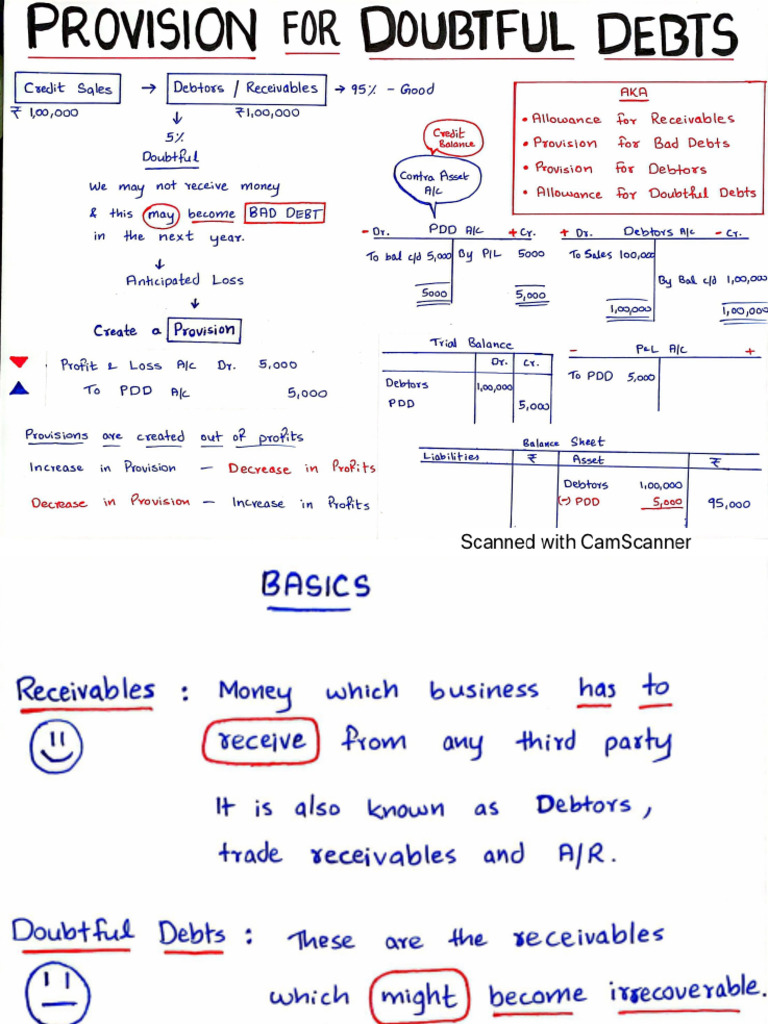 PROVISION FOR DOUBTFUL DEBTS
Credit Sales → Debtors / Receivables → 95% - Good
₹ 1,00,000 ₹1,00,000
↓
5%
Doubtful
We may not receive money
& this may become BAD DEBT
in the next year.
↓
Anticipated Loss
↓
Create a Provision
Profit & Loss A/c Dr. 5,000
To PDD A/c 5,000
Provisions are created out of profits
Increase in Provision — Decrease in Profits
Decrease in Provision — Increase in Profits
AKA
• Allowance for Receivables
• Provision for Bad Debts
• Provision for Debtors
• Allowance for Doubtful Debts
Credit
Balance
Contra Asset
A/c
- Dr. PDD A/c + Cr.
To bal c/d 5,000 By P/L 5000
5000 5,000
+ Dr. Debtors A/c - Cr.
To Sales 100,000
By Bal c/d 1,00,000
1,00,000 1,00,000
Trial Balance
Dr. Cr.
Debtors 1,00,000
PDD 5,000
- P&L A/c +
To PDD 5,000
Balance Sheet
Liabilities ₹ Asset ₹
Debtors 1,00,000
(-) PDD 5,000 95,000
Scanned with CamScanner
BASICS
Receivables : Money which business has to
receive from any third party
It is also known as Debtors,
trade receivables and A/R.
Doubtful Debts : These are the receivables
which might become irrecoverable.